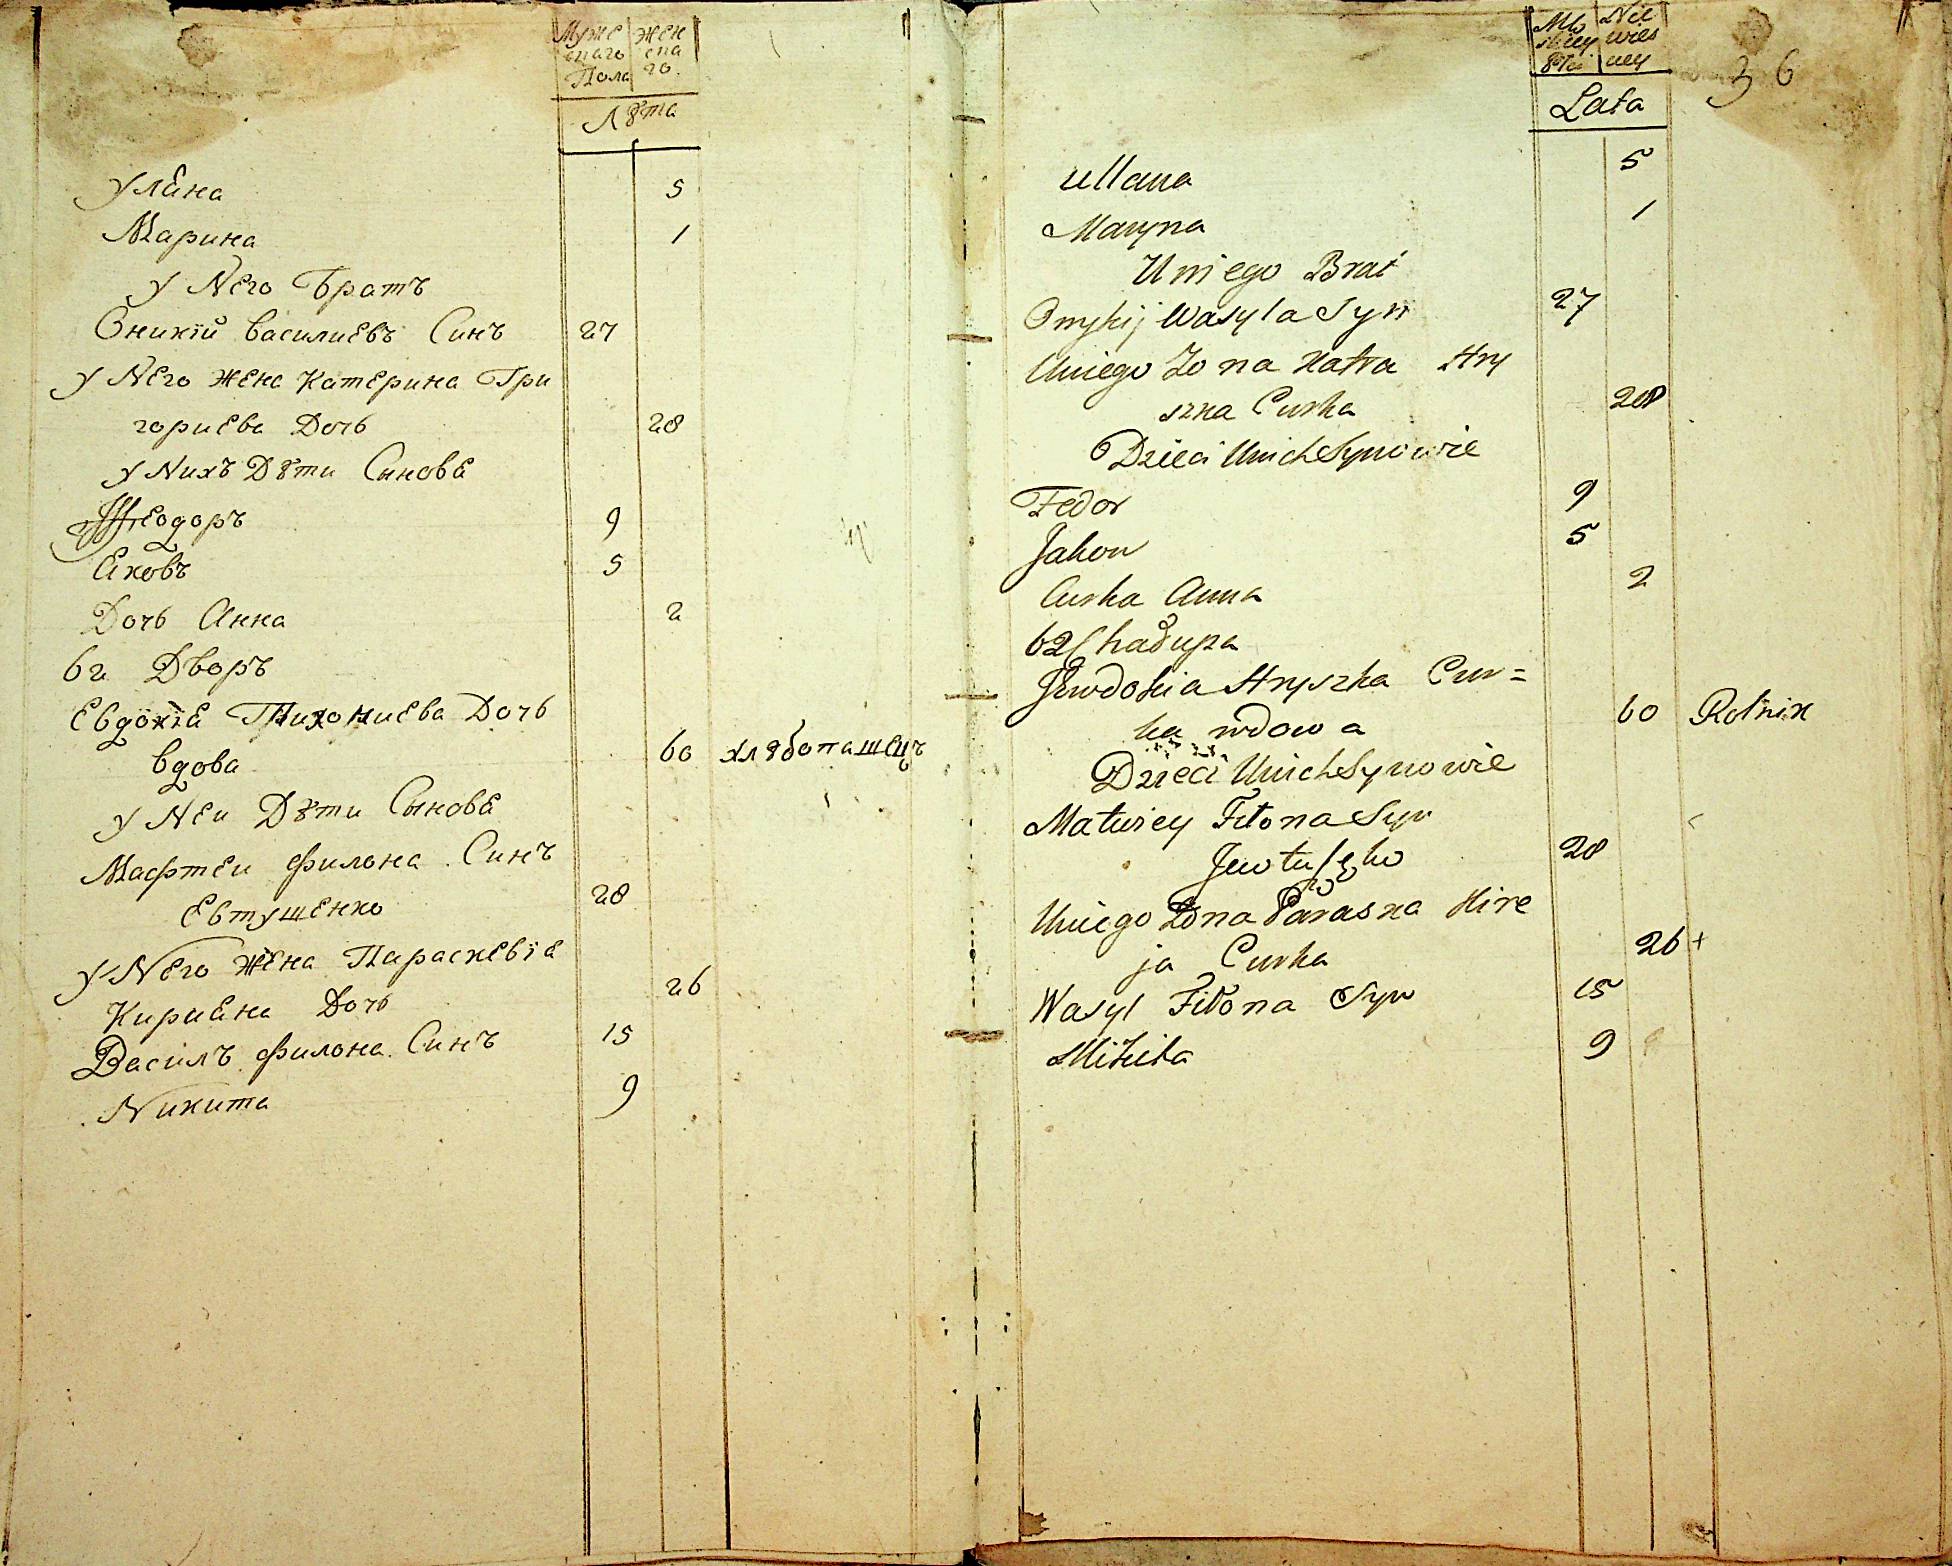 Муже Жен
скаго ска
Пола го
Лѣта
Уляна 5
Марина 1
У Него Братъ
Оникій Василиевъ Синъ 27
У Него Жена Катерина Гри
гориева Дочь 28
У Нихъ Дѣти Сыновя
Ѳеодоръ 9
Яковъ 5
Дочь Анна 2
62 Дворъ
Евдокія Тихониева Дочь
вдова 60 хлѣбопашецъ
У Неи Дѣти Сыновя
Мафтеи Филона Синъ
Евтушенко 28
У Него Жена Параскевія
Кирияна Дочь 26
Василъ Филона Синъ 15
Никита 9
36
Mę Nie
skiey wies
Płci ciey
Lata
Ullana 5
Maryna 1
U niego Brat
Onykij Wasyla Syn 27
U niego Zona Katra Hry
szka Curka 28
Dzieci U nich Synowie
Fedor 9
Jakow 5
Curka Anna 2
62 Chałupa
Jewdokia Hryszka Cur=
ka wdowa 60 Rolnik
Dzieci U nich Synowie
Matwiey Fiłona Syn
28
U niego Zona Paraska Kire
ja Curka 26 +
Wasyl Fiłona Syn 15
Mikita 9